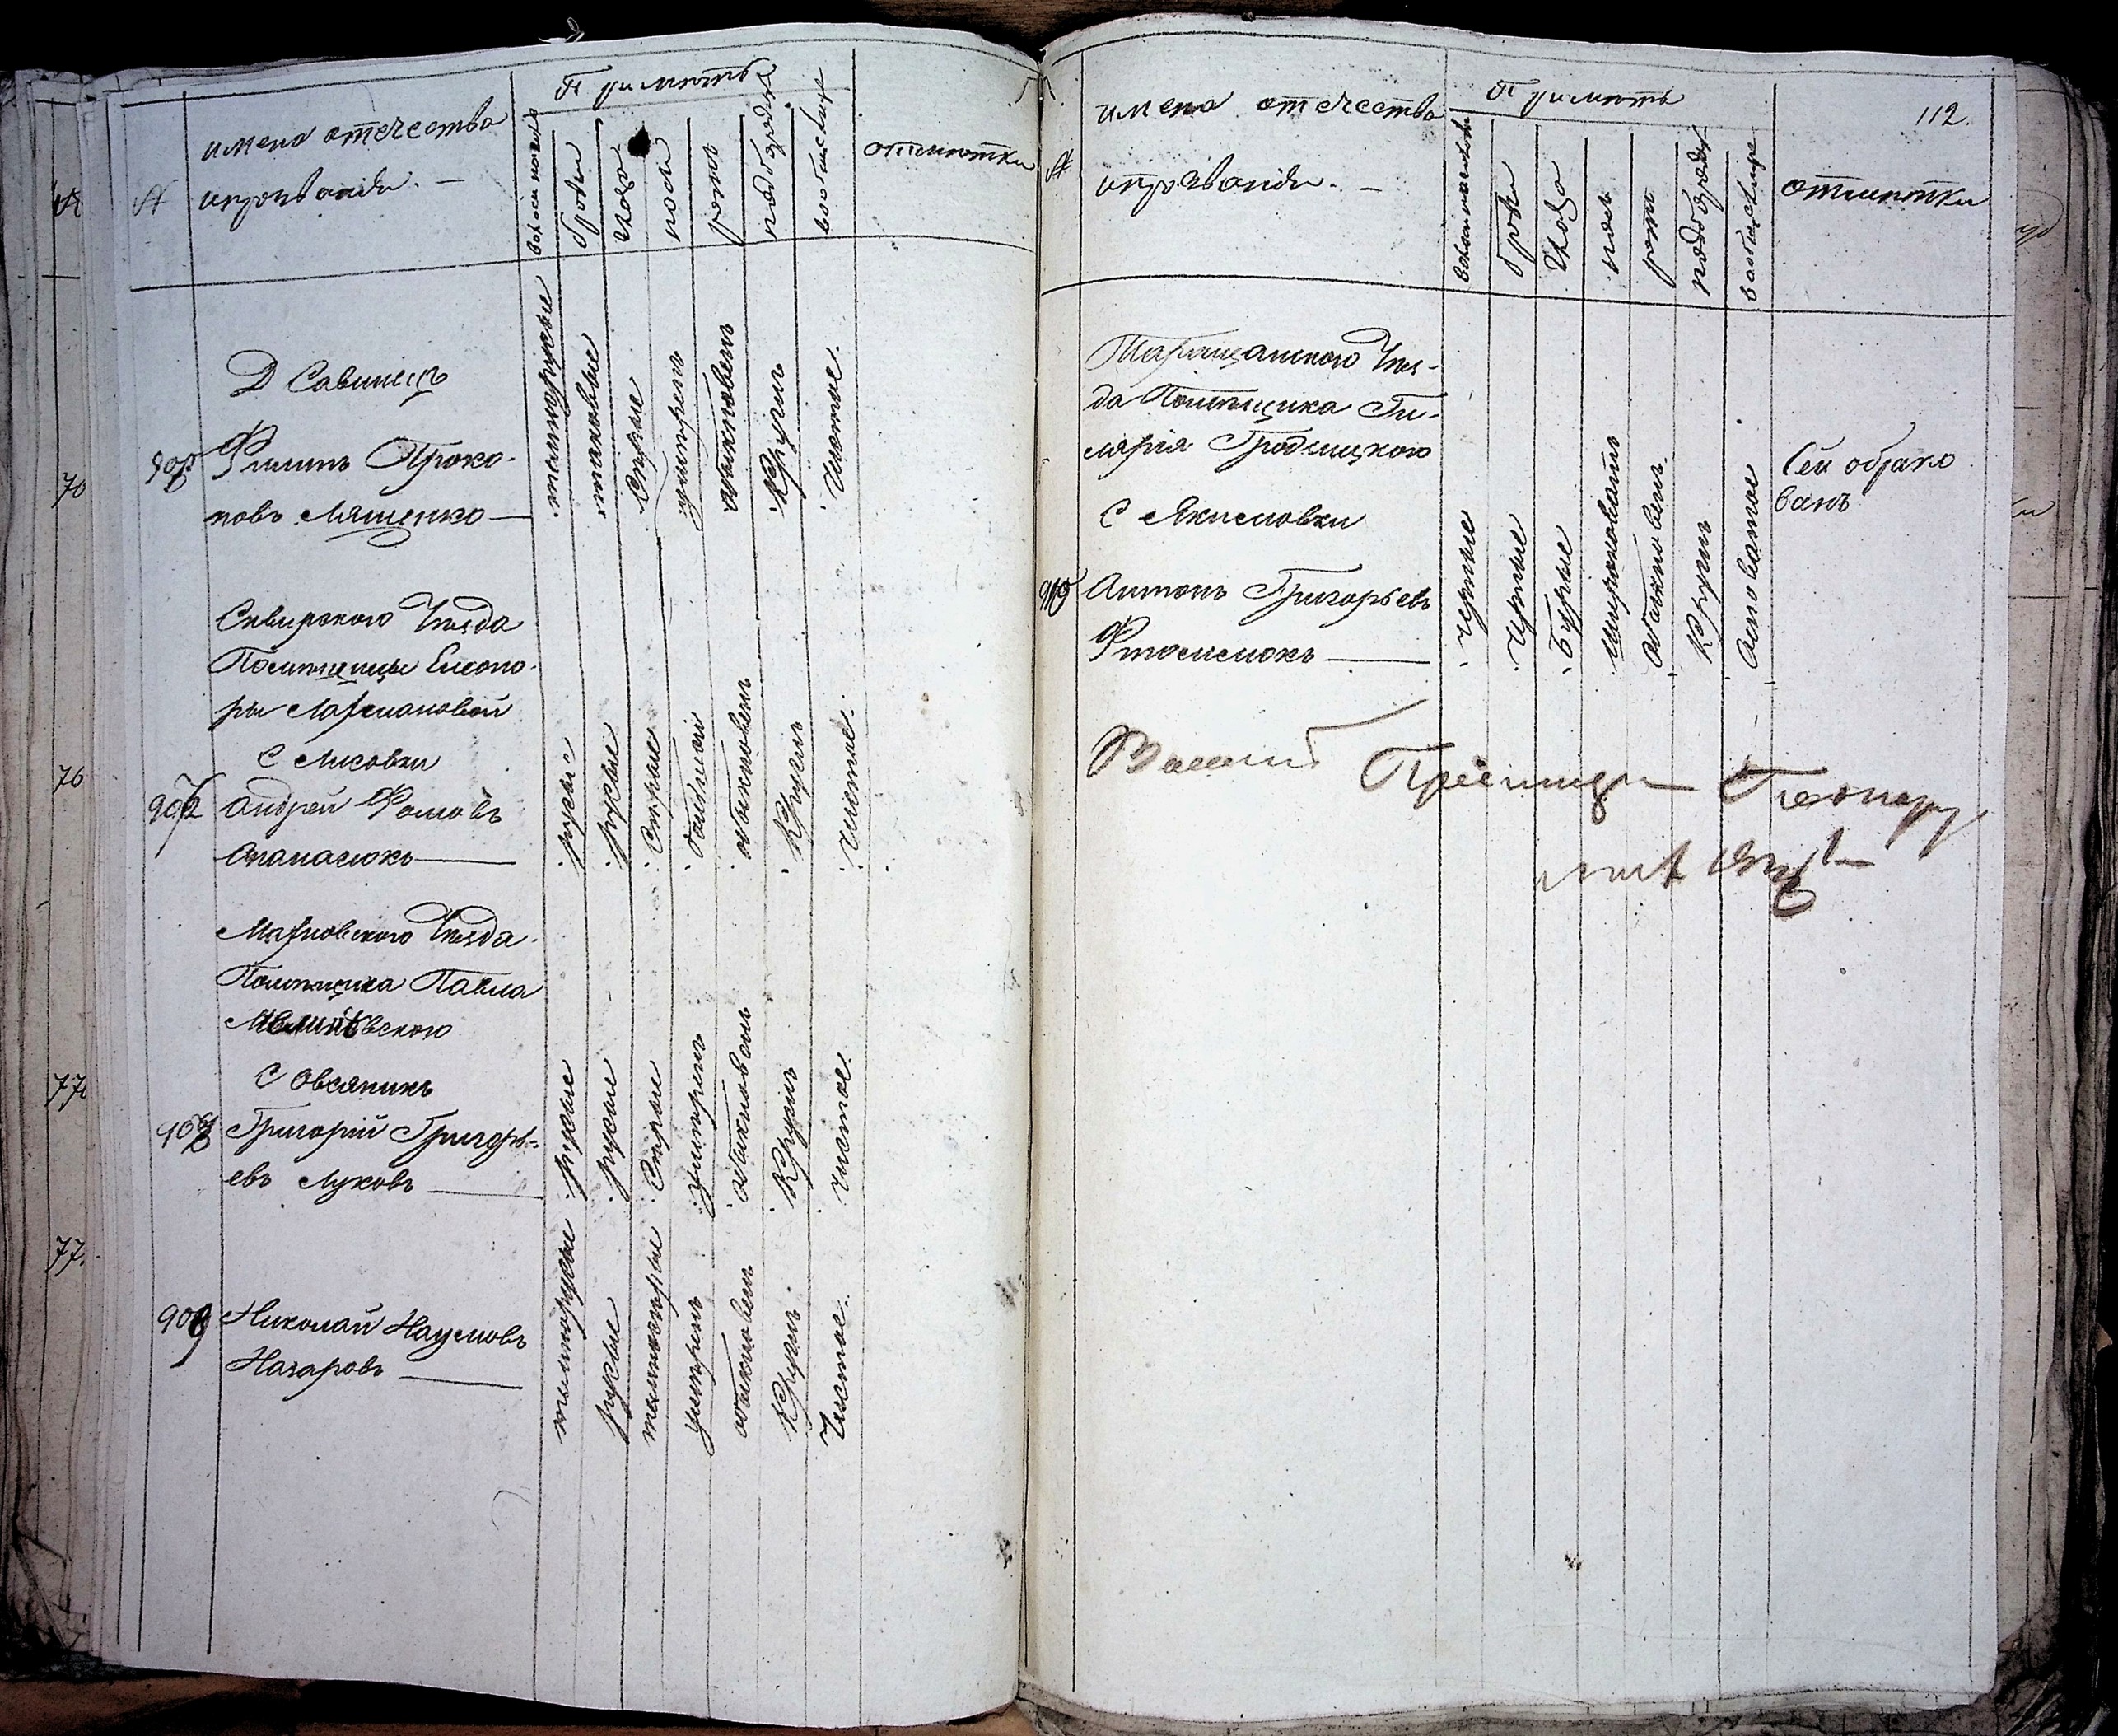 имена отечества
и прозвания. —
Приметы
волосы на голове
брови
глаза
носъ
ротъ
подбородокъ
вообще лице
отметки
Д Савинецъ
Филипъ Проко-
повъ Ляшенко —
темнорусые
таковые
Серые
умеренъ
обыкновенъ
Круглъ
Чистое.
Сквирского Уезда
Помещицы Елеоно-
ры
С Лисовки
907 Андрей Фомовъ
Апанасюкъ —
русые
русые
Серые
обыкновенъ
Круглъ
Чистое.
Махновского Уезда
Помещика Павла
С Овсяникъ
908 Григорий Григорь-
евъ Луковъ —
русые
русые
Серые
умеренъ
обыкновенъ
Круглъ
чистое.
909 Николай Наумовъ
Назаровъ —
темнорусые
русые
темносерые
умеренъ
обыкновенъ
Круглъ
Чистое.
112.
имена отечества
и прозвания. —
Приметы
волосы на голове
брови
глаза
носъ
ротъ
подбородокъ
вообще лице
отметки
Таращанского Уез-
да Помещика Ги-
лярія Гродзицкого
С Якимовки
910 Антонъ Григорьевъ
черные
черные
бурые
широковатъ
обыкновенъ.
Круглъ
Сей обрако
ванъ
70
76
77
77.